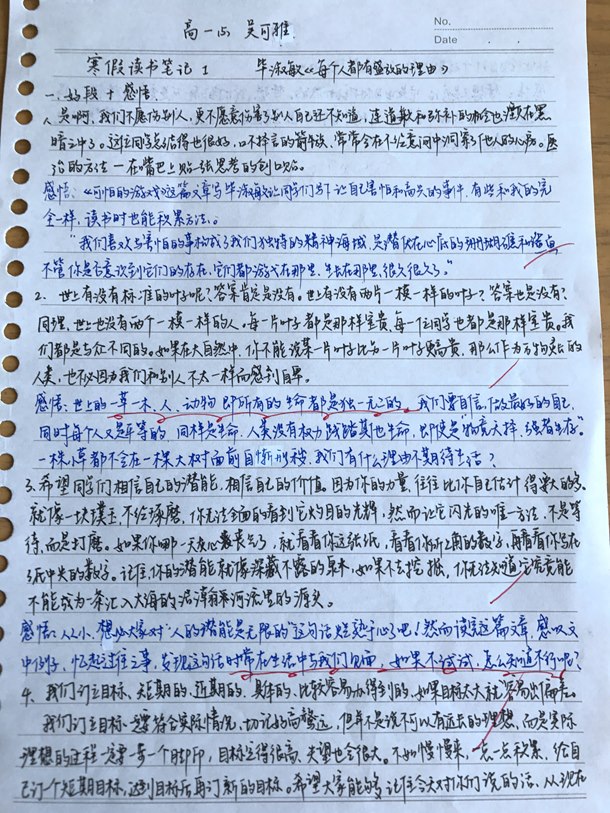 高一(5) 吴可雅
No.
Date
寒假读书笔记1 毕淑敏《每个人都有盛放的理由》
一、好段+感悟:
1、是啊,我们不愿伤别人,更不愿意伤害了别人自己还不知道,连道歉和弥补的机会也埋在黑
暗之中了。这位同学总结得也很好,口不择言的箭,常常会在不经意间中洞察了他人的心房。医
治的方法—在嘴巴上贴一张思考的创口贴。
感悟:《可怕的游戏》这篇文章写毕淑敏让同学们写下让自己害怕和高兴的事件,有些和我的完
全一样,读书时也能积累方法。
"我们喜欢与害怕的事构成了我们独特的精神海域,是潜伏在心底的珊瑚礁和暗岛
不管你是否意识到它们的存在,它们都游弋在那里、生长在那里,很久很久了。"
2、世上有没有标准的叶呢?答案肯定是没有。世上有没有两片一模一样的叶子?答案也是没有?
同理,世上也没有两个一模一样的人。每一片叶子都是那样宝贵,每一位同学也都是那样宝贵。我
们都是与众不同的。如果在大自然中,你不能说某一片叶子比另一片叶子更高贵,那么作为万物灵长的
人类,也不必因为我们和别人不太一样而感到自卑。
感悟:世上的一草一木、人、动物即所有的生命都是独一无二的。我们要自信,做最好的自己,
同时每个人又是平等的,同样是生命,人类没有权力践踏其他生命,即使是物竞天择,强者生存。
一株小草都不会在一棵大树面前自惭形秽,我们有什么理由不期待生活?
3、希望同学们相信自己的潜能,相信自己的价值。因为你的力量,往往比你自己估计得要大的多,
就像一块璞玉,不经琢磨,你无法全面的看到它夺目的光辉,然而让它闪光的唯一方法,不是等
待,而是打磨。如果你哪一天灰心丧气了,就看看你这张纸,看看你所上角的数字,再看看你写在
纸中央的数字。记住,你的潜能就像深藏不露的泉水,如果不去挖掘,你无法知道它究竟能
不能成为一条汇入大海的滔滔江河流里的源头。
感悟:从小,想必大家对"人的潜能是无限的"这句话烂熟于心吧!然而读完这篇文章,感叹文
中例子,忆起过往之事,发现这句话时常在生活中与我们见面,如果不试试,怎么知道不行呢?
4、我们订立目标,短期的、近期的、具体的、比较容易办得到的,如果目标太大就容易出偏差。
我们订立目标一定要符合实际情况,切记好高骛远,但并不是说不可以有远大的理想,而是实际
理想的过程一定要一步一个脚印,目标定得很高,失望也会很大。不如慢慢来,一点一点积累,给自
己订一个短期目标,达到目标后再订新的目标。希望大家能够记住今天对你们说的话,从现在